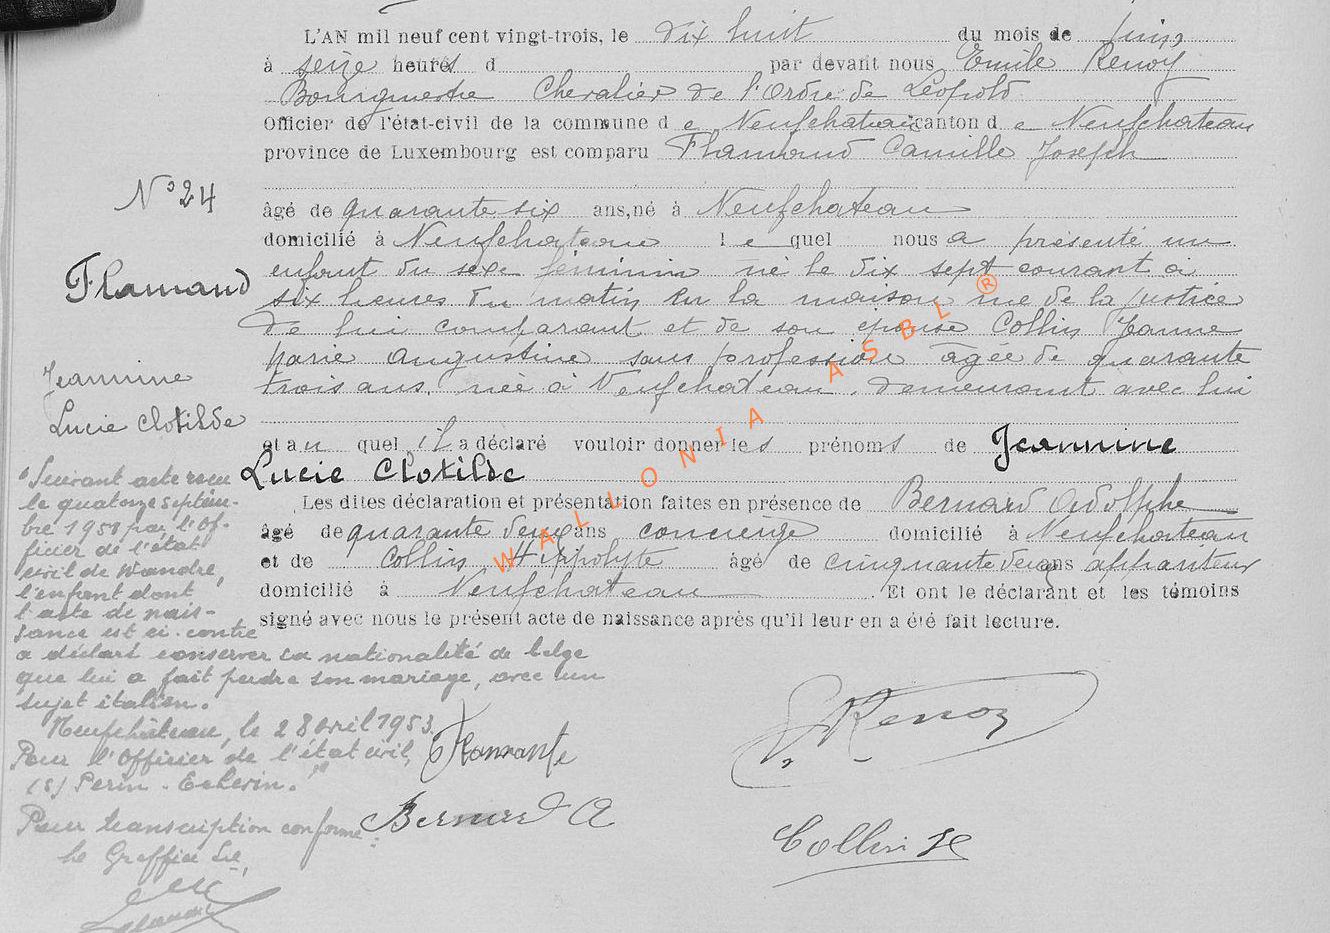 L'AN mil neuf cent vingt-trois, le dix huit du mois de juin
à seize heures d par devant nous Emile Renoy
Bourgmestre Chevalier de l'Ordre de Léopold
Officier de l'état-civil de la commune de Neufchateau canton de Neufchateau
province de Luxembourg est comparu Flamand Camille Joseph
N° 24
âgé de quarante six ans, né à Neufchateau
domicilié à Neufchateau le quel nous a présenté un
Flamand
enfant du sexe féminin né le dix sept courant à
six heures du matin en la maison rue de la justice
de lui comparant et de son épouse Collin Jeanne
Marie Augustine sans profession âgée de quarante
trois ans, née à Neufchateau, demeurant avec lui
Jeannine
Lucie Clotilde
et au quel il a déclaré vouloir donner les prénoms de Jeannine
Lucie Clotilde
Les dites déclaration et présentation faites en présence de Bernard Adolphe
âgé de quarante deux ans concierge domicilié à Neufchateau
et de Collin Hippolyte âgé de cinquante deux ans appariteur
domicilié à Neufchateau Et ont le déclarant et les témoins
signé avec nous le présent acte de naissance après qu'il leur en a été fait lecture.
Suivant acte reçu
le quatorze septem-
bre 1951 par l'Of-
ficier de l'état
civil de Wandre,
l'enfant dont
l'acte de nais-
sance est ci-contre
a déclaré conserver sa nationalité de belge
que lui a fait perdre son mariage, avec un
sujet italien.
Neufchâteau, le 28 avril 1953.
Pour l'Officier de l'état civil,
(s) Perin - Echevin."
Pour transcription conforme:
Le Greffier
Renoy
Bernard A
Collin H
WALLONIA ASBL ®